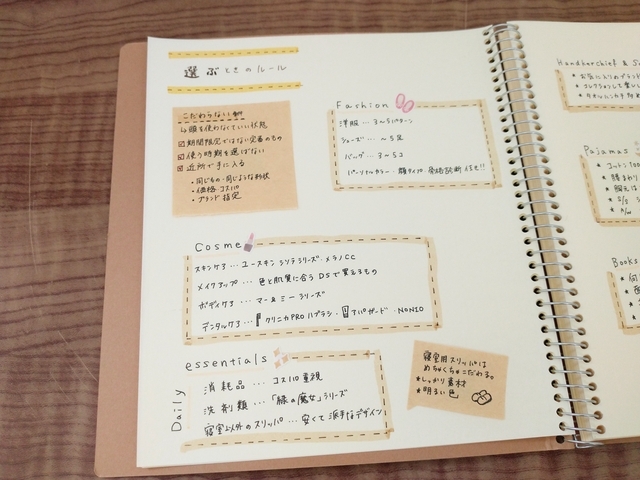 選ぶときのルール
こだわらない物
↳頭を使わなくていい状態
☑期間限定ではない定番のもの
☑使う時期を選ばない
☑近所で手に入る
・同じもの・同じような形状
・価格 コスパ
・ブランド 指定
Fashion
洋服…3〜5パターン
シューズ…〜5足
バッグ…3〜5コ
パーソナルカラー・顔タイプ・骨格診断 活を!!
Cosme
スキンケア…ユースキン シソラ シリーズ・メラノCC
メイクアップ…色と肌質に合う DSで買えるもの
ボディケア…マー&ミー シリーズ
デンタルケア…クリニカPRO ハブラシ・アパガード・NONIO
Daily essentials
消耗品…コスパ重視
洗剤類…「緑の魔女」シリーズ
寝室以外のスリッパ…安くて派手なデザイン
寝室用スリッパは
めちゃくちゃこだわる。
★しっかり素材
★明るい色
Handkerchief &
★ お気に入りのブラン
★ コレクションして楽し
Pajamas
★ コットン100
★ 胸元は
★ S/S
★ A/W
Books
★ 何